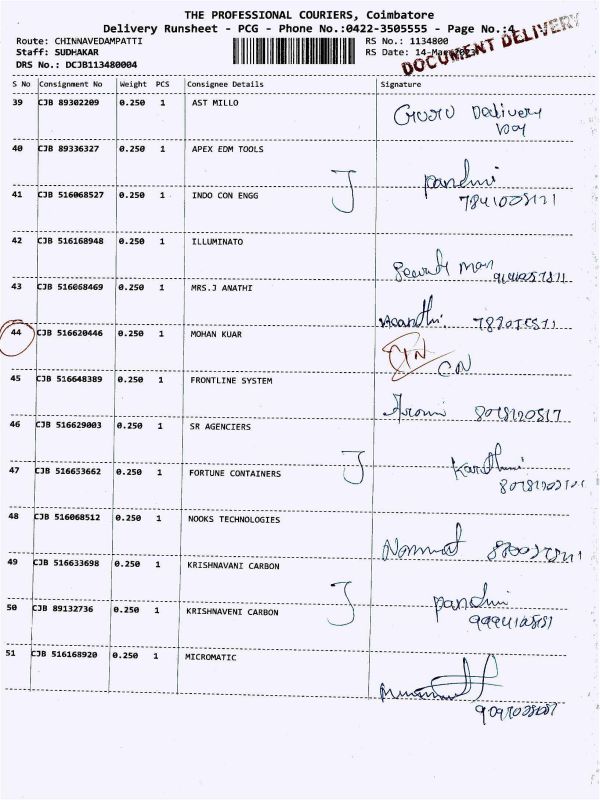 THE PROFESSIONAL COURIERS, Coimbatore
Delivery Runsheet - PCG - Phone No.:0422-3505555 - Page No.:4
Route: CHINNAVEDAMPATTI
RS No.: 1134800
Staff: SUDHAKAR
RS Date: 14-Mar-2023
DRS No.: DCJB113480004
DOCUMENT DELIVERY
S No Consignment No Weight PCS Consignee Details Signature
39 CJB 89302209 0.250 1 AST MILLO
Delivery
boy
40 CJB 89336327 0.250 1 APEX EDM TOOLS
41 CJB 516068527 0.250 1 INDO CON ENGG
42 CJB 516168948 0.250 1 ILLUMINATO
43 CJB 516068469 0.250 1 MRS.J ANATHI
44 CJB 516620446 0.250 1 MOHAN KUAR
CN
45 CJB 516648389 0.250 1 FRONTLINE SYSTEM
46 CJB 516629003 0.250 1 SR AGENCIERS
47 CJB 516653662 0.250 1 FORTUNE CONTAINERS
48 CJB 516068512 0.250 1 NOOKS TECHNOLOGIES
49 CJB 516633698 0.250 1 KRISHNAVANI CARBON
50 CJB 89132736 0.250 1 KRISHNAVENI CARBON
51 CJB 516168920 0.250 1 MICROMATIC